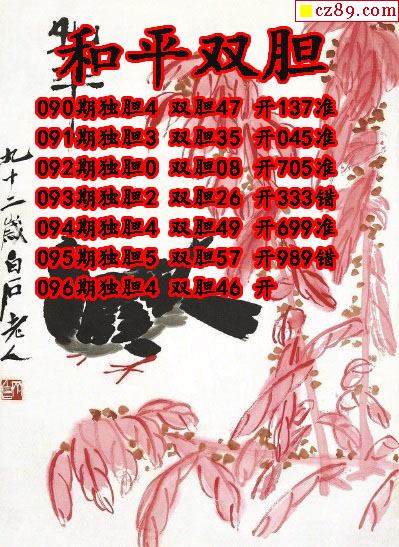 cz89.com
和平双胆
090期独胆4 双胆47 开137准
091期独胆3 双胆35 开045准
092期独胆0 双胆08 开705准
093期独胆2 双胆26 开333错
094期独胆4 双胆49 开699准
095期独胆5 双胆57 开989错
096期独胆4 双胆46 开
九十二岁白石老人